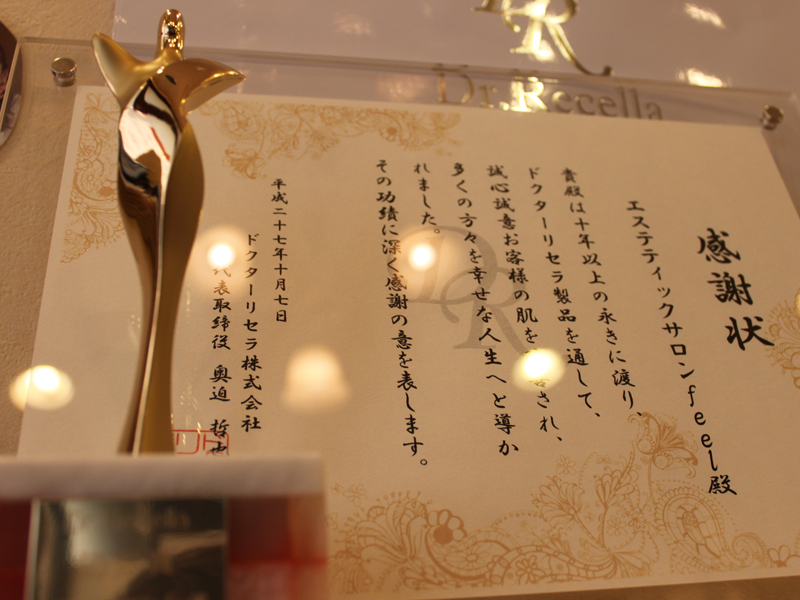 Dr.Recella
感謝状
エステティックサロンfeel殿
貴殿は十年以上の永きに渡り、
ドクターリセラ製品を通して、
誠心誠意お客様の肌を され、
多くの方々を幸せな人生へと導か
れました。
その功績に深く感謝の意を表します。
平成二十七年十月七日
ドクターリセラ株式会社
代表取締役 奥迫 哲也
DR